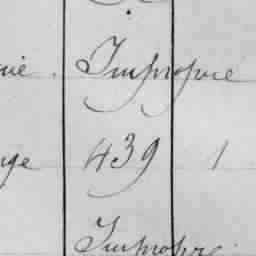 Impropre
439 1
Impropre